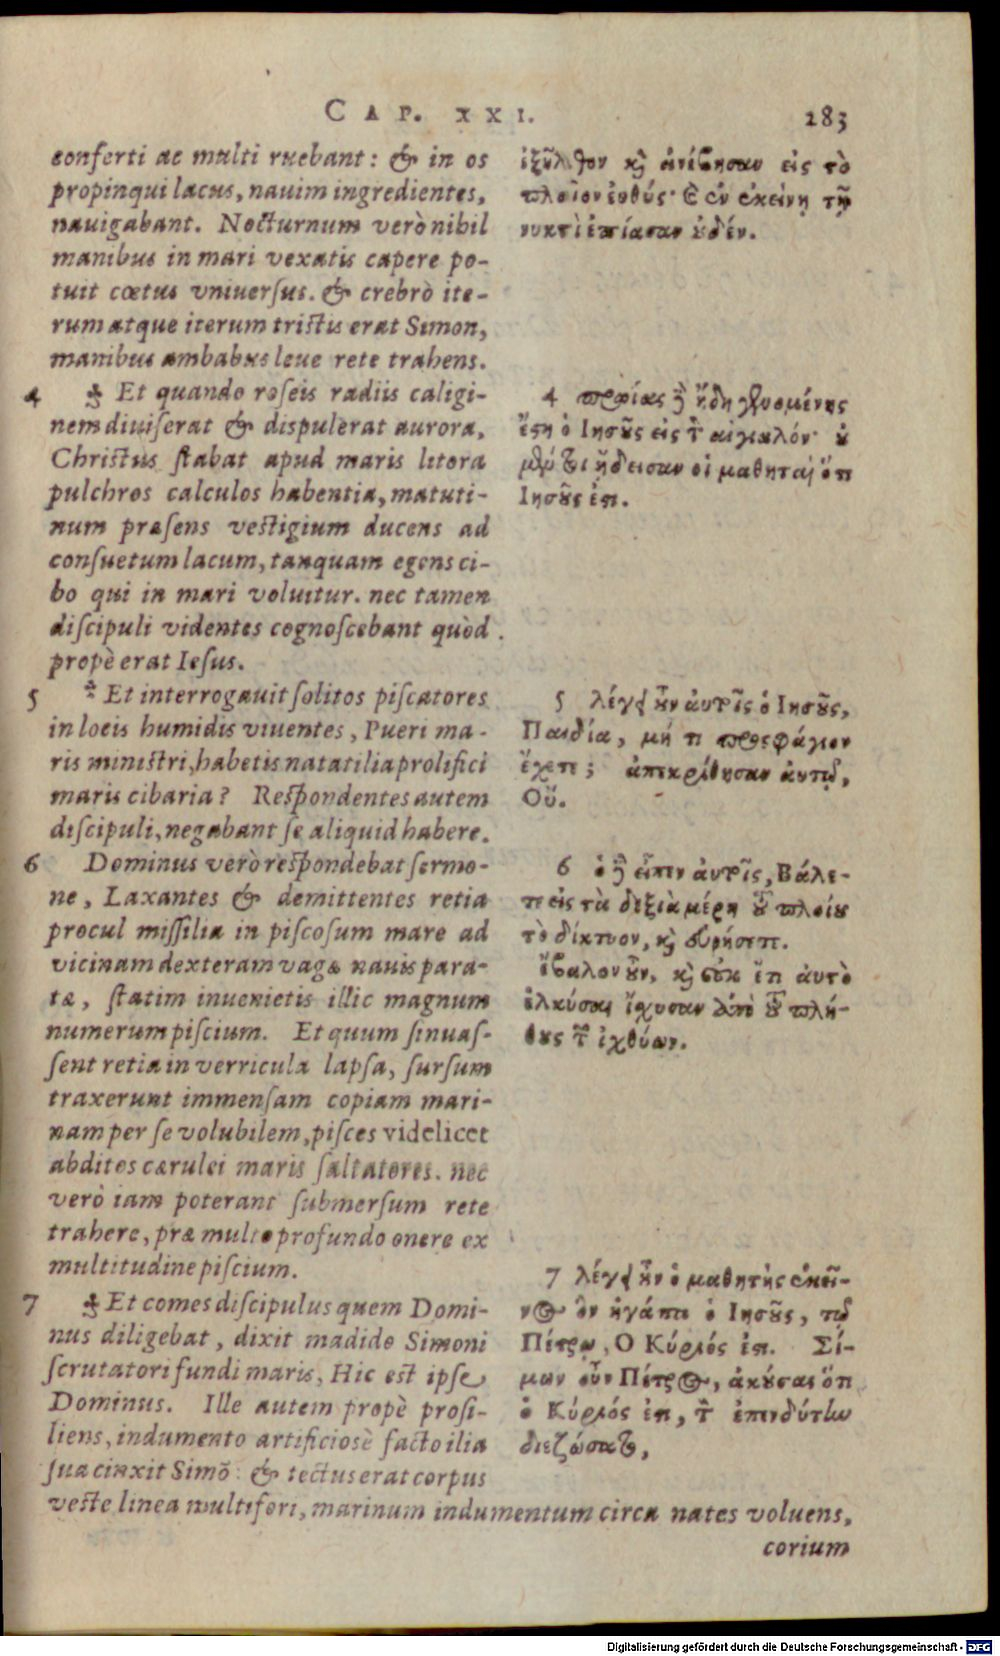 CAP. XXI. 283
conferti ac multi ruebant: & in os
propinqui lacus, nauim ingredientes,
nauigabant. Nocturnum verò nihil
manibus in mari vexatis capere po-
tuit cœtus vniuersus. & crebrò ite-
rum atque iterum tristis erat Simon,
manibus ambabus leue rete trahens.
4 Et quando roseis radiis caligi-
nem diuiserat & dispulerat aurora,
Christus stabat apud maris litora
pulchros calculos habentia, matuti-
num præsens vestigium ducens ad
consuetum lacum, tanquam egens ci-
bo qui in mari voluitur. nec tamen
discipuli videntes cognoscebant quòd
propè erat Iesus.
5 Et interrogauit solitos piscatores
in locis humidis viuentes, Pueri ma-
ris ministri, habetis natatilia prolifici
maris cibaria? Respondentes autem
discipuli, negabant se aliquid habere.
6 Dominus verò respondebat sermo-
ne, Laxantes & demittentes retia
procul missilia in piscosum mare ad
vicinam dexteram vagæ nauis para-
tæ, statim inuenietis illic magnum
numerum piscium. Et quum sinuas-
sent retia in verricula lapsa, sursum
traxerunt immensam copiam mari-
nam per se volubilem, pisces videlicet
abditos cærulei maris saltatores. nec
verò iam poterant submersum rete
trahere, præ multo profundo onere ex
multitudine piscium.
7 Et comes discipulus quem Domi-
nus diligebat, dixit madido Simoni
scrutatori fundi maris, Hic est ipse
Dominus. Ille autem propè prosi-
liens, indumento artificiosè facto ilia
sua cinxit Simō: & tectus erat corpus
veste linea multifori, marinum indumentum circa nates voluens,
corium
ἐξῆλθον καὶ ἀνέβησαν εἰς τὸ
πλοῖον εὐθύς· καὶ ἐν ἐκείνῃ τῇ
νυκτὶ ἐπίασαν οὐδέν.
4 πρωίας δὲ ἤδη γενομένης
ἔστη ὁ Ιησοῦς εἰς τὸν αἰγιαλόν· οὐ
μέντοι ᾔδεισαν οἱ μαθηταὶ ὅτι
Ιησοῦς ἐστι.
5 λέγει οὖν αὐτοῖς ὁ Ιησοῦς,
Παιδία, μή τι προσφάγιον
ἔχετε; ἀπεκρίθησαν αὐτῷ,
Οὔ.
6 ὁ δὲ εἶπεν αὐτοῖς, Βάλε-
τε εἰς τὰ δεξιὰ μέρη τοῦ πλοίου
τὸ δίκτυον, καὶ εὑρήσετε.
ἔβαλον οὖν, καὶ οὐκ ἔτι αὐτὸ
ἑλκύσαι ἴσχυσαν ἀπὸ τοῦ πλή-
θους τῶν ἰχθύων.
7 λέγει οὖν ὁ μαθητὴς ἐκεῖ-
νος ὃν ἠγάπα ὁ Ιησοῦς, τῷ
Πέτρῳ, Ο Κύριός ἐστι. Σί-
μων οὖν Πέτρος, ἀκούσας ὅτι
ὁ Κύριός ἐστι, τὸν ἐπενδύτην
διεζώσατο,
Digitalisierung gefördert durch die Deutsche Forschungsgemeinschaft - DFG